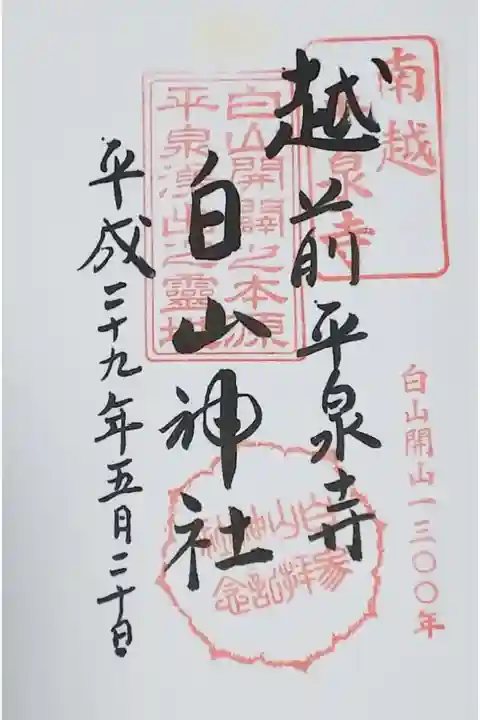 南越
平泉寺
白山開山一三〇〇年
越前平泉寺
白山開闢之本源
平泉清山之靈地
白山神社
白山神社
参拝記念
平成二十九年五月二十日